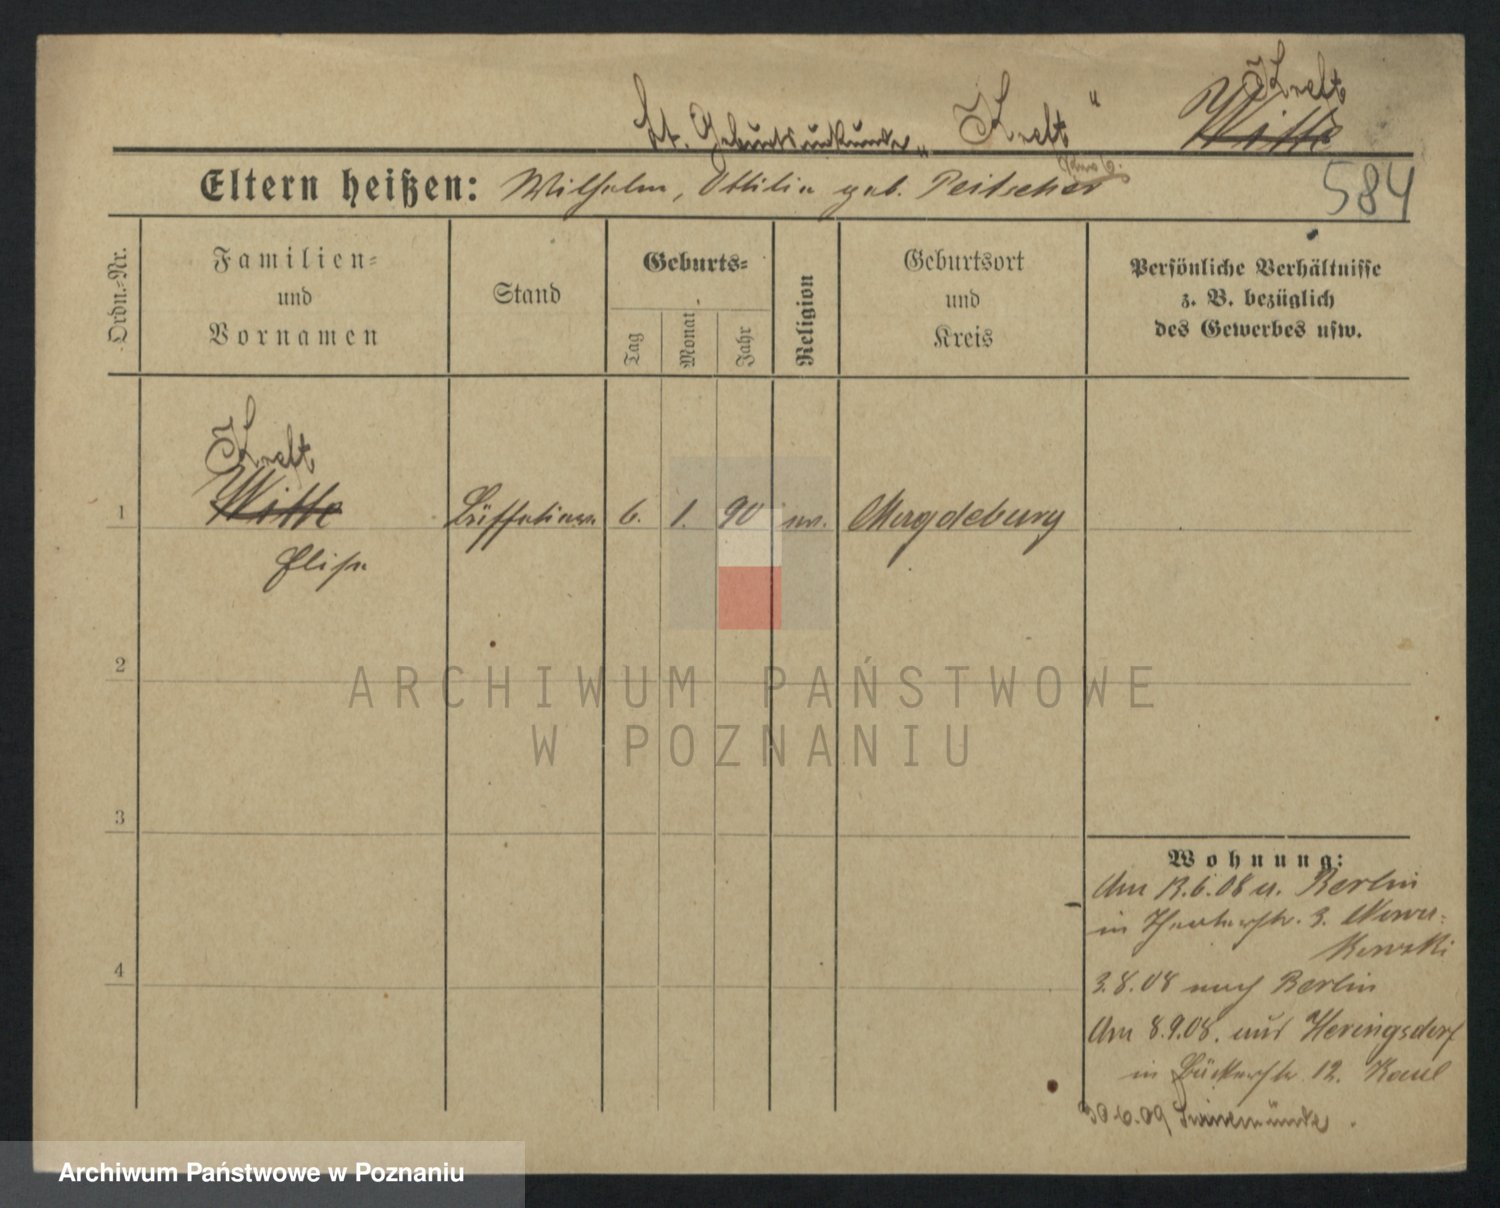 Kreft
lt. Geburtsurkunde „Kreft“ Witte
Eltern heißen: Wilhelm, Ottilie geb. Peitscher
584
Ordn.-Nr.
Familien-
und
Vornamen
Stand
Geburts-
Tag
Monat
Jahr
Religion
Geburtsort
und
Kreis
Persönliche Verhältnisse
z. B. bezüglich
des Gewerbes usw.
Kreft
1 Witte Büffetiere 6. 1. 90 ev. Magdeburg
Elise
2
3
4
Wohnung:
Am 13.6.08 a. Berlin
in Theaterstr. 3. Nowa-
kowski
3.8.08 nach Berlin
Am 8.9.08. aus Heringsdorf
in Bäckerstr 12. Kaul
30.6.09 Swinemünde.
ARCHIWUM PAŃSTWOWE
W POZNANIU
Archiwum Państwowe w Poznaniu